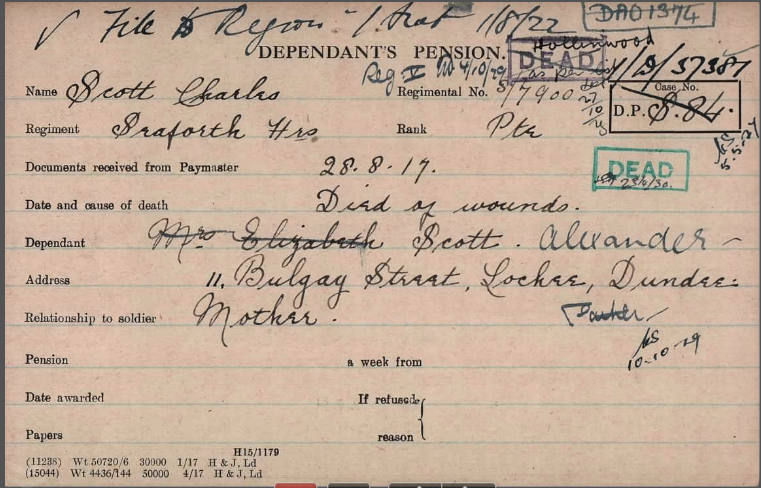 ✓ File to Region 1/8/22 DAO1374
DEPENDANT'S PENSION. DEAD Hollinwood
Reg V 4/10/29 as per 1/D/37387
Name Scott Charles Regimental No. S/7900 Case No. D.P. S.84.
Regiment Seaforth Hrs Rank Pte 5.5.27
Documents received from Paymaster 28.8.17. DEAD
Date and cause of death Died of wounds.
Dependant Mrs Elizabeth Scott. Alexander
Address 11, Bulgay Street, Lochee, Dundee.
Relationship to soldier Mother.
10-10-29
Pension a week from
Date awarded If refused
Papers reason
H15/1179
(11238) Wt 50720/6 30000 1/17 H & J, Ld
(15044) Wt 4436/144 50000 4/17 H & J, Ld